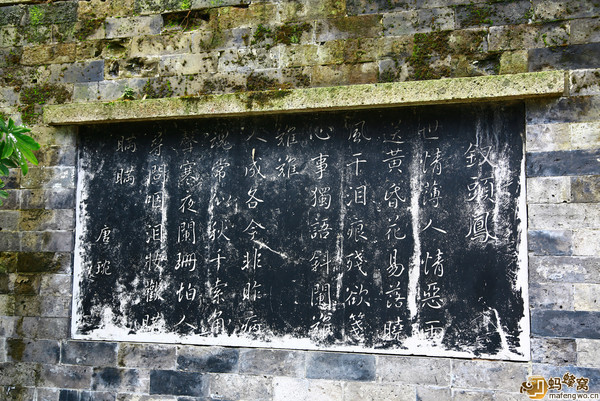 釵頭鳳
世情薄人情惡雨
送黃昏花易落曉
風干泪痕殘欲箋
心事獨語斜闌難
難難
人成各今非昨病
魂常似秋千索角
聲寒夜闌珊怕人
尋問咽泪妝歡瞞
瞞瞞
唐琬
蚂蜂窝
mafengwo.cn